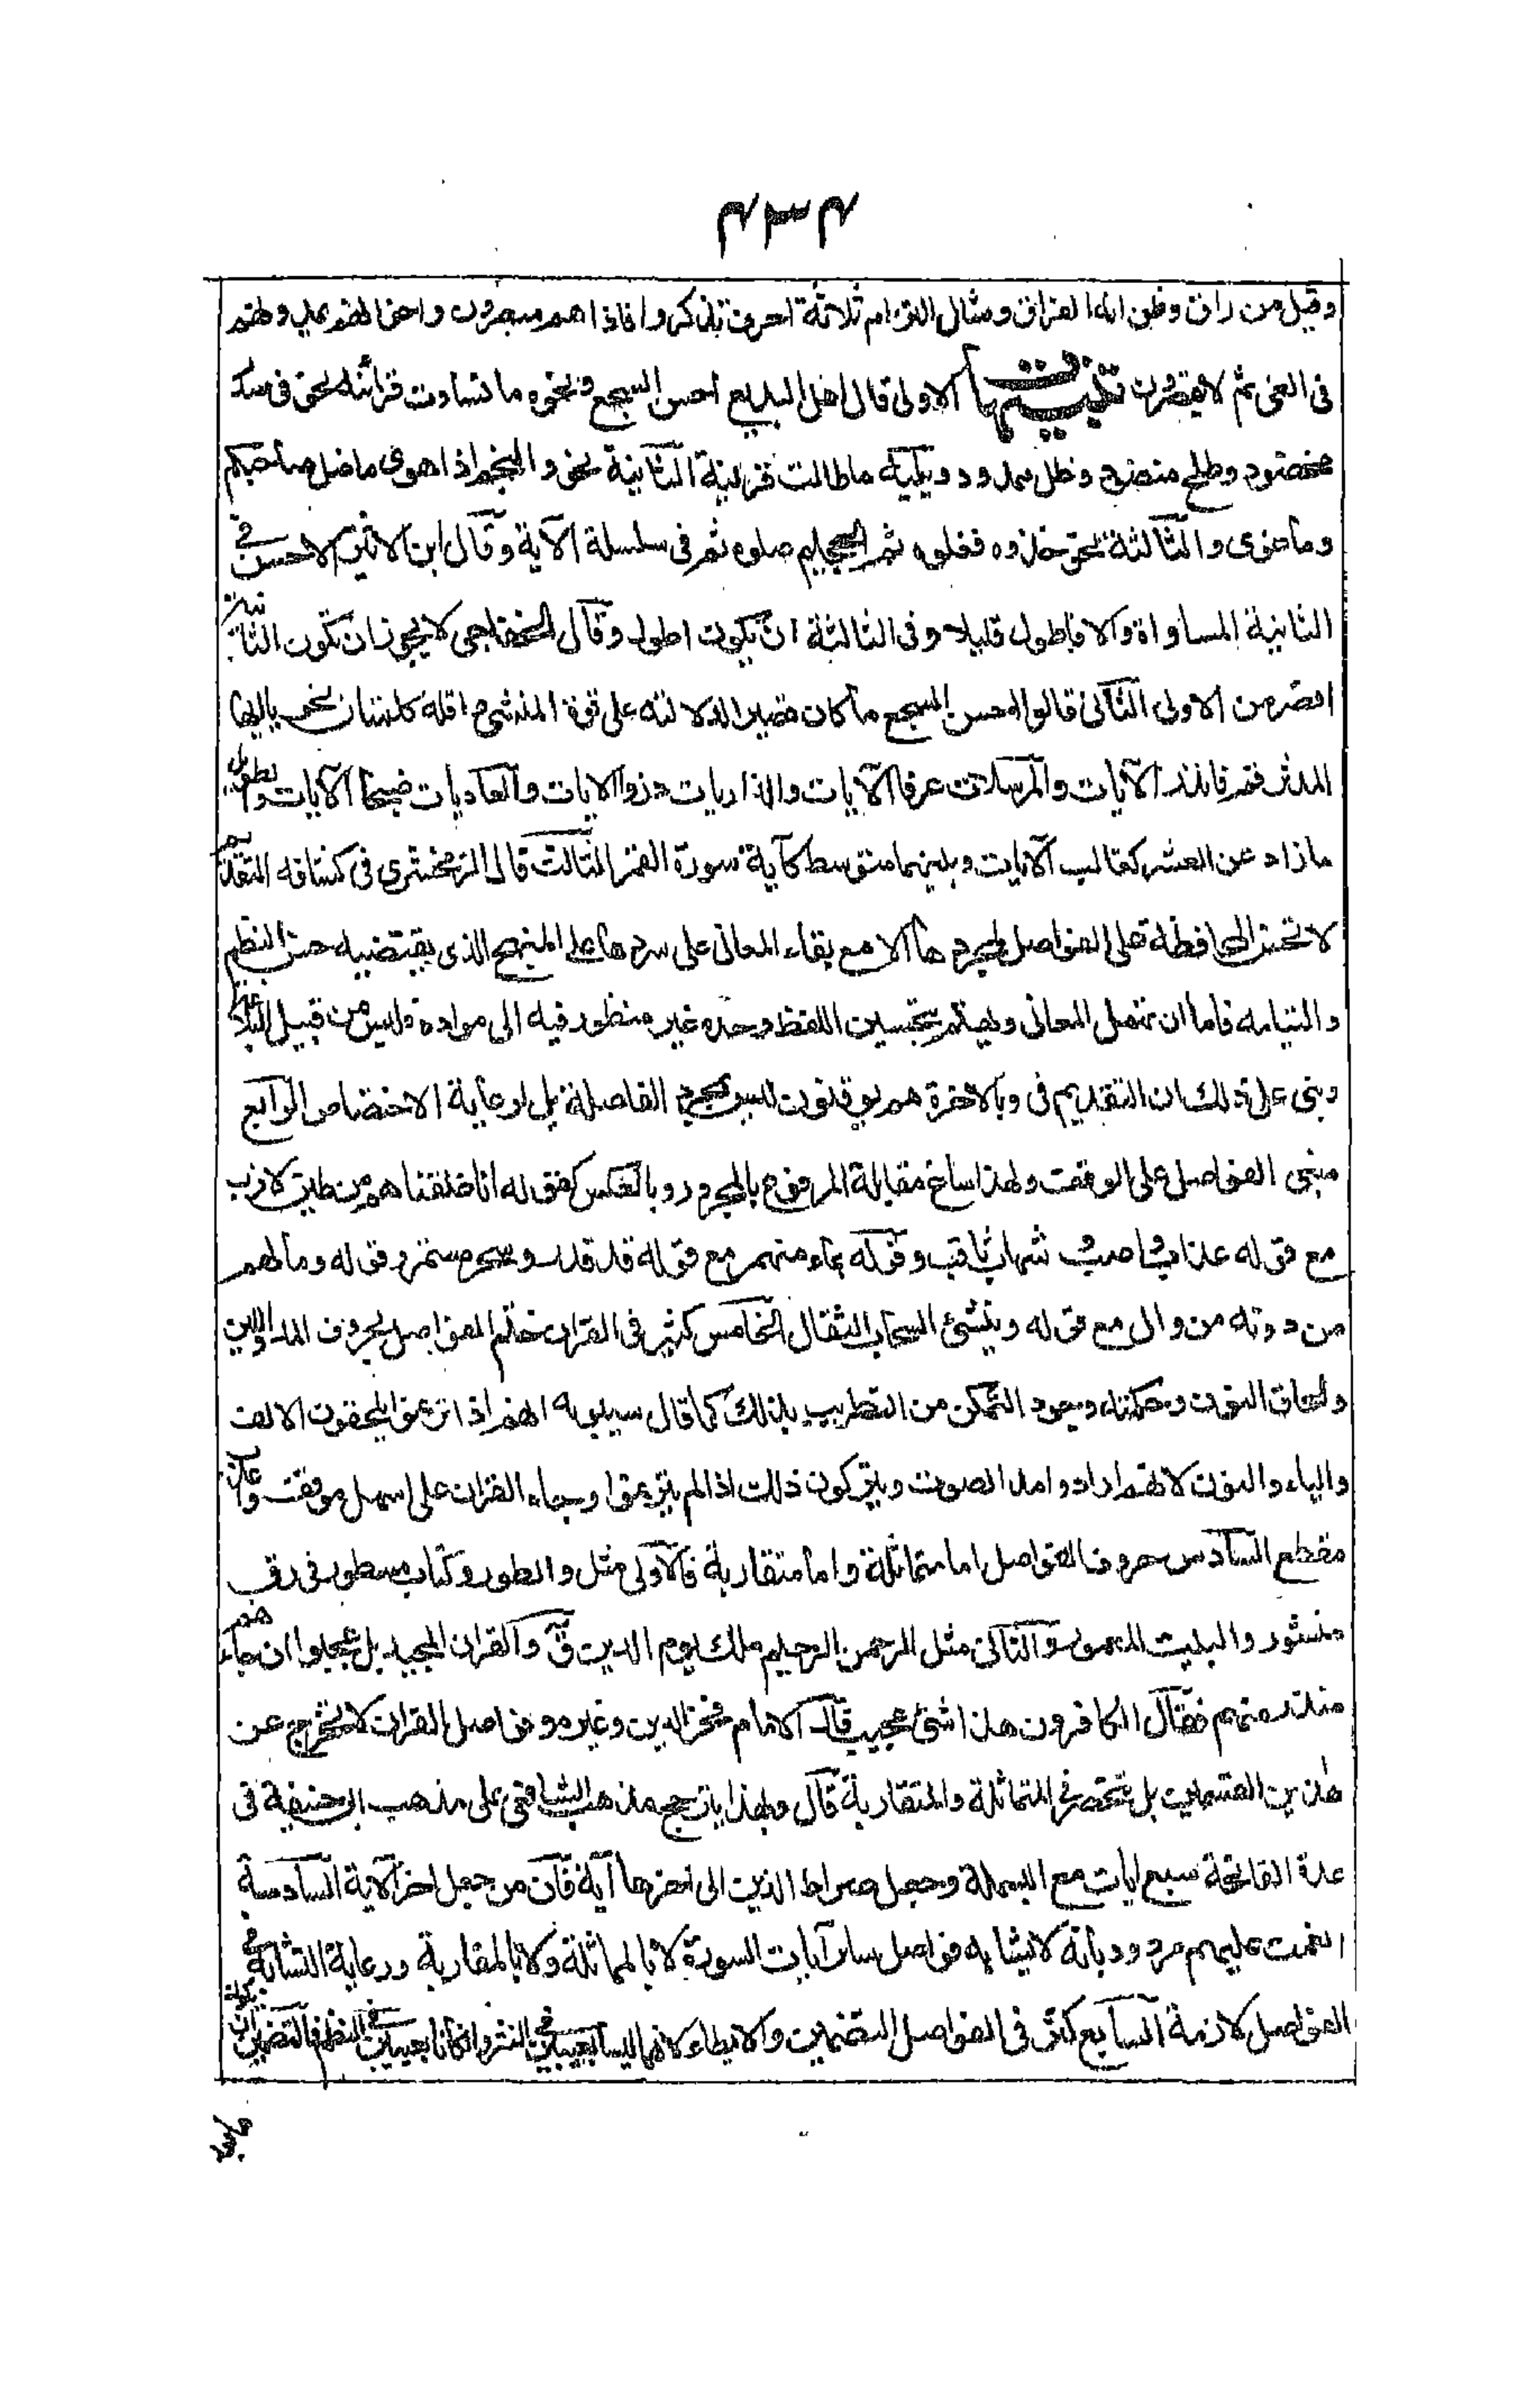 ٤٣٤
وقيل من راق وظن انه الفراق ومثال التزام ثلاثة احرف تذكروا فاذا هم مبصرون واخوانهم يمدونهم
فى الغى ثم لا يقصرون تنبيهات الاولى قال اهل البديع احسن السجع ونحوه ما تساوت قرائنه نحو فى سدر
مخضود وطلح منضود وظل ممدود ويليه ما طالت قرينة الثانية نحو والنجم اذا هوى ما ضل صاحبكم
وما غوى والثالثة نحو خذوه فغلوه ثم الجحيم صلوه ثم فى سلسلة الآية وقال ابن الاثير الاحسن فى
الثانية المساواة والا فاطول قليلا وفى الثالثة ان يكون اطول وقال الخفاجى لا يجوز ان تكون الثانية
اقصر من الاولى الثانى قالوا احسن السجع ما كان قصيرا لدلالته على قوة المنشئ واقله كلمتان نحو يا ايها
المدثر قم فانذر الآيات والمرسلات عرفا الآيات والذاريات ذروا الايات والعاديات ضبحا الآيات والطويل
ما زاد عن العشر كغالب الآيات وبينهما متوسط كآية سورة القمر الثالث قال الزمخشرى فى كشافه القديم
لا تحسن المحافظة على الفواصل لمجردها الا مع بقاء المعانى على سردها على المنهج الذى يقتضيه حسن النظم
والتيامه فاما ان تهمل المعانى ويهتم بتحسين اللفظ وحده غير منظور فيه الى مواده فليس من قبيل البلاغة
وبنى على ذلك ان التقديم فى وبالاخرة هم يوقنون ليس لمجرد الفاصلة بل لرعاية الاختصاص الرابع
مبنى الفواصل على الوقف ولهذا ساغ مقابلة المرفوع بالمجرور وبالعكس كقوله انا خلقناهم من طين لازب
مع قوله عذاب واصب و شهاب ثاقب وقوله بماء منهمر مع قوله قد قدر وسحر مستمر وقوله وما لهم
من دونه من وال مع قوله وينشئ السحاب الثقال الخامس كثير فى القران ختم الفواصل بحروف المد واللين
والحاق النون وحكمته وجود التمكن من التطريب بذلك كما قال سيبويه انهم اذا ترنموا يلحقون الالف
والياء والنون لانهم ارادوا مد الصوت ويتركون ذلك اذا لم يترنموا وجاء القران على اسهل موقف واعذب
مقطع السادس حروف الفواصل اما متماثلة واما متقاربة فالاولى مثل والطور وكتاب مسطور فى رق
منشور والبيت المعمور والثانى مثل الرحمن الرحيم ملك يوم الدين ق والقران المجيد بل عجبوا ان جاءهم
منذر منهم فقال الكافرون هذا شئ عجيب قال الامام فخر الدين وغيره وفواصل القران لا تخرج عن
هذين القسمين بل تنحصر فى المتماثلة والمتقاربة قال وبهذا يترجح مذهب الشافعى على مذهب ابى حنيفة فى
عد الفاتحة سبع ايات مع البسملة وجعل صراط الذين الى اخرها آية فان من جعل اخر الآية السادسة
انعمت عليهم مردود بانه لا يشابه فواصل سائر آيات السورة لا بالمماثلة ولا بالمقاربة ورعاية التشابه فى
الفواصل لازمة السابع كثر فى الفواصل التضمين والايطاء لانهما ليسا بعيبين فى النثر وان كانا بعيبين فى النظم فالتضمين ان يكون